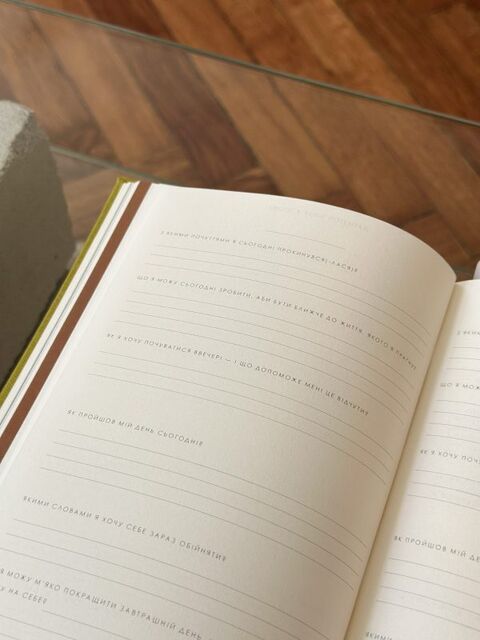 З ЯКИМИ ПОЧУТТЯМИ Я СЬОГОДНІ ПРОКИНУВСЯ(-ЛАСЯ)?
ЩО Я МОЖУ СЬОГОДНІ ЗРОБИТИ, АБИ БУТИ БЛИЖЧЕ ДО ЖИТТЯ, ЯКОГО Я ПРАГНУ?
ЯК Я ХОЧУ ПОЧУВАТИСЯ ВВЕЧЕРІ — І ЩО ДОПОМОЖЕ МЕНІ ЦЕ ВІДЧУТИ?
ЯК ПРОЙШОВ МІЙ ДЕНЬ СЬОГОДНІ?
ЯКИМИ СЛОВАМИ Я ХОЧУ СЕБЕ ЗАРАЗ ОБІЙНЯТИ?
Я МОЖУ М'ЯКО ПОКРАЩИТИ ЗАВТРАШНІЙ ДЕНЬ
НА СЕБЕ?
З ЯКИМИ
ЩО Я МОЖ
ЯК Я ХОЧУ ПОЧ
ЯК ПРОЙШОВ МІЙ ДЕ
ЯКИМИ